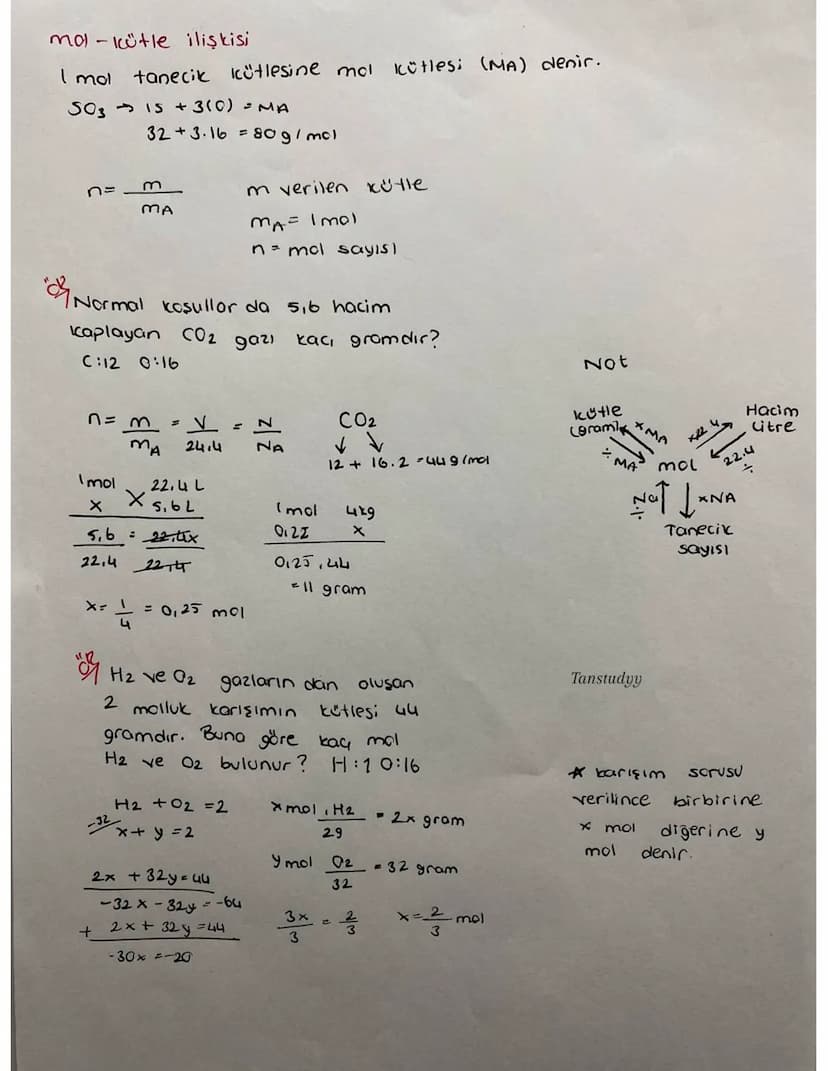 mol - kütle ilişkisi
1 mol tanecik kütlesine mol kütlesi (MA) denir.
SO3 → 1S + 3(O) = MA
32 + 3.16 = 80 g/mol
n = m
MA
m verilen kütle
mA = 1 mol
n = mol sayısı
ÖR
Normal koşullor da 5,6 hacim
kaplayan CO2 gazı kaçı gromdır?
C:12 O:16
n = m = V = N
MA 24,4 NA
CO2
↓ ↓
12 + 16.2 = 44 g/mol
1mol 22,4 L
x 5,6 L
5,6 = 22,4x
22,4 22,4
x = 1 = 0,25 mol
4
1mol 44g
0,25 x
0,25 . 44
= 11 gram
Not
Kütle
(gram)
x MA
÷ MA
mol
x22,4
22,4
÷
Hacim
Litre
Na
÷
xNA
Tanecik
sayısı
ÖR
H2 ve O2 gazların dan oluşan
2 molluk karışımın kütlesi 44
gramdır. Buna göre kaç mol
H2 ve O2 bulunur? H:1 O:16
H2 + O2 = 2
-32/ x + y = 2
2x + 32y = 44
-32x - 32y = -64
+ 2x + 32y = 44
-30x = -20
x mol . H2 = 2x gram
29
y mol O2 = 32 gram
32
3x = 2
3 3
x = 2 mol
3
Tanstudyy
* karışım sorusu
verilince birbirine
x mol diğerine y
mol denir.